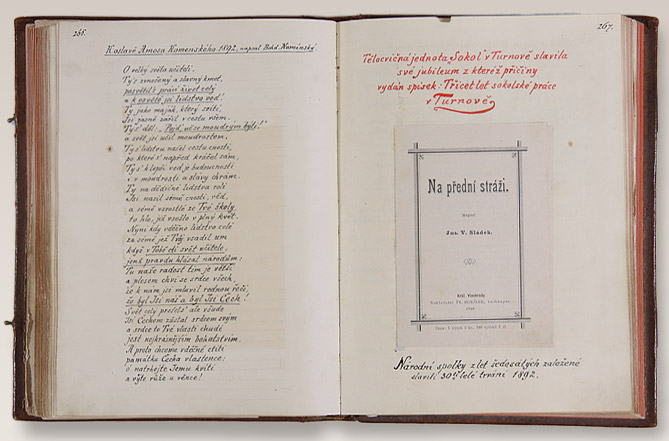 266.
K oslavě Amosa Komenského 1892, napsal Bohd. Neminský.
O velký světa učiteli.
Tys zvučený a slavný kmet,
posvětil's práci život celý
a k osvětě jsi lidstvo ved'.
Ty jako maják, který svítí,
Jsi jasně zářil v cestu všem.
Tys děl: „Pojď, uč se moudrým býti!“
a svět jsi učil moudrostem.
Tys lidstvu našel cestu ctnosti,
po které's napřed kráčel sám,
Tys k lepší ved' je budoucnosti
i v moudrosti a slávy chrám.
Ty na dědičné lidstva roli
Jsi nasil símě ctností, věd,
a símě vzrostlé ze Tvé školy
to hle, již vzešlo v plný květ.
Nyní kdy vděčno lidstvo celé
za símě jež Tvůj vsadil um
když v Tobě ctí svět učitele,
jenž pravdu hlásal národům:
Tu naše radost tím je větší
a plesem chví se srdce všech,
že k nám jsi mluvil rodnou řečí,
žes byl Jsi náš a byl Jsi Čech!
Svět celý prošels' ale všude
Jsi Čechem zůstal srdcem svým
a srdce to Tvé vlasti chudé
jest nejkrásnějším bohatstvím.
A proto chceme vděčně ctíti
památku Čecha vlastence:
ó natrhejte Jemu kvítí
a vijte růže u věnce!
267.
Tělocvičná jednota „Sokol“ v Turnově slavila
své jubileum z kteréž příčiny
vydán spisek: Třicet let sokolské práce
v Turnově
Na přední stráži.
Napsal
Jos. V. Sládek.
Král. Vinohrady.